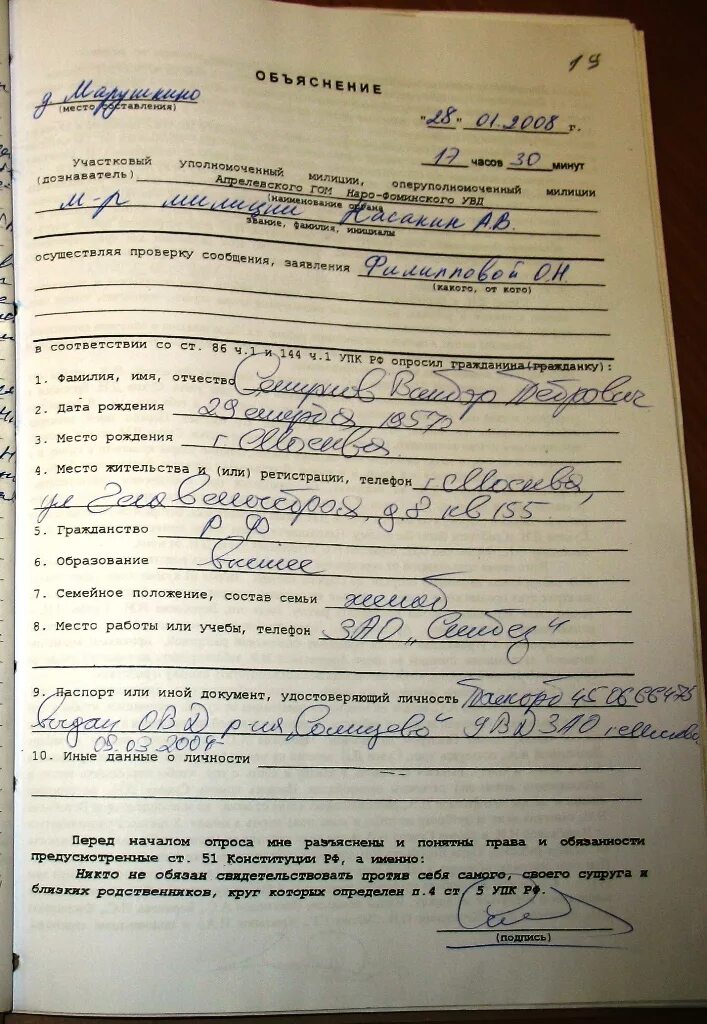 19
ОБЪЯСНЕНИЕ
д Марушкино
(место составления)
"28" 01.2008 г.
17 часов 30 минут
Участковый уполномоченный милиции, оперуполномоченный милиции
(дознаватель) Апрелевского ГОМ Наро-Фоминского УВД
(наименование органа
м-р милиции Касакин А.В.
звание, фамилия, инициалы
осуществляя проверку сообщения, заявления Филипповой О.Н.
(какого, от кого)
в соответствии со ст. 86 ч.1 и 144 ч.1 УПК РФ опросил гражданина(гражданку):
1. Фамилия, имя, отчество Смирнов Петрович
2. Дата рождения 29 1957
3. Место рождения г Москва
4. Место жительства и (или) регистрации, телефон г Москва,
ул д 8 кв 155
5. Гражданство РФ
6. Образование высшее
7. Семейное положение, состав семьи женат
8. Место работы или учебы, телефон ЗАО "
9. Паспорт или иной документ, удостоверяющий личность Паспорт 45 06 66475
выдан ОВД р-на „Солнцево" УВД ЗАО г Москвы
03.2004
10. Иные данные о личности
Перед началом опроса мне разъяснены и понятны права и обязанности
предусмотренные ст. 51 Конституции РФ, а именно:
Никто не обязан свидетельствовать против себя самого, своего супруга и
близких родственников, круг которых определен п.4 ст 5 УПК РФ.
(подпись)